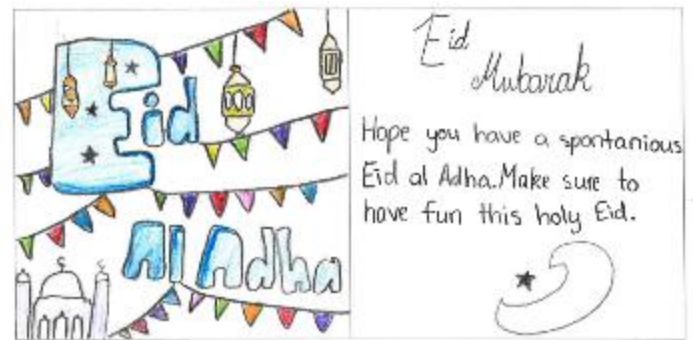 Eid
Al Adha
Eid
Mubarak
Hope you have a spontanious
Eid al Adha. Make sure to
have fun this holy Eid.